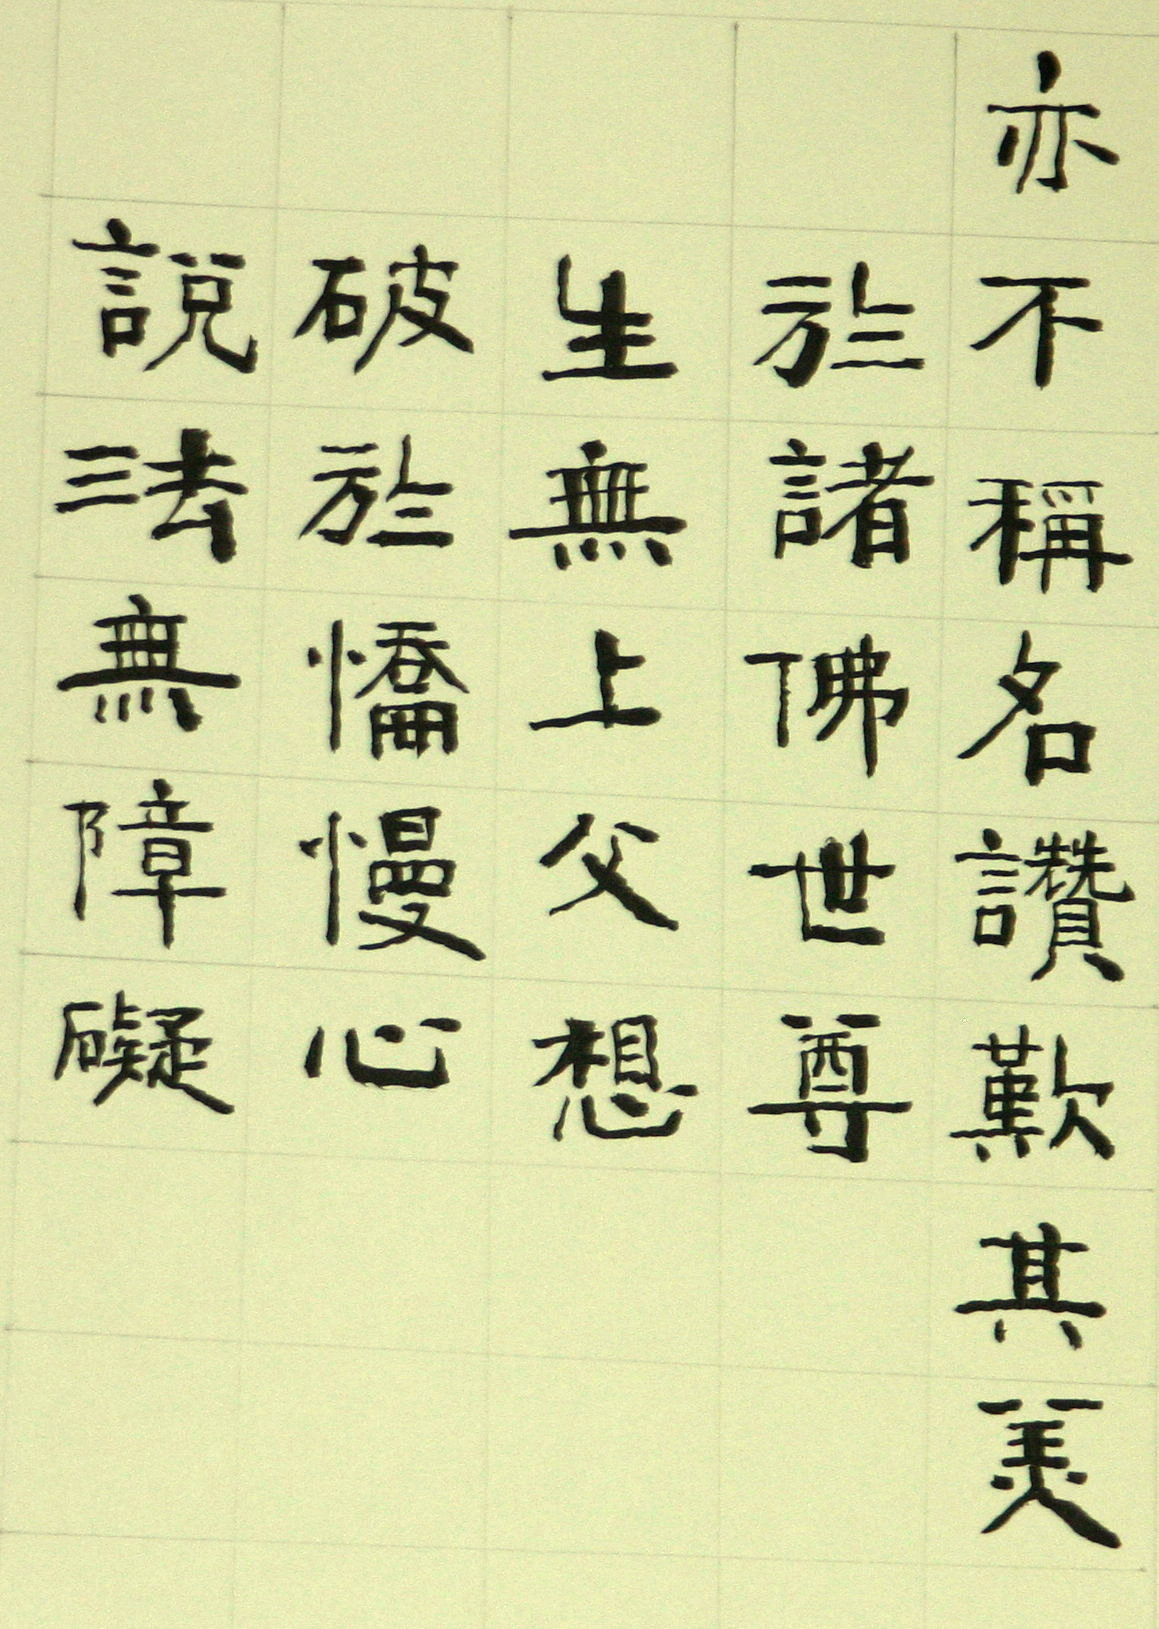 亦不稱名讚歎其美
於諸佛世尊
生無上父想
破於憍慢心
說法無障礙